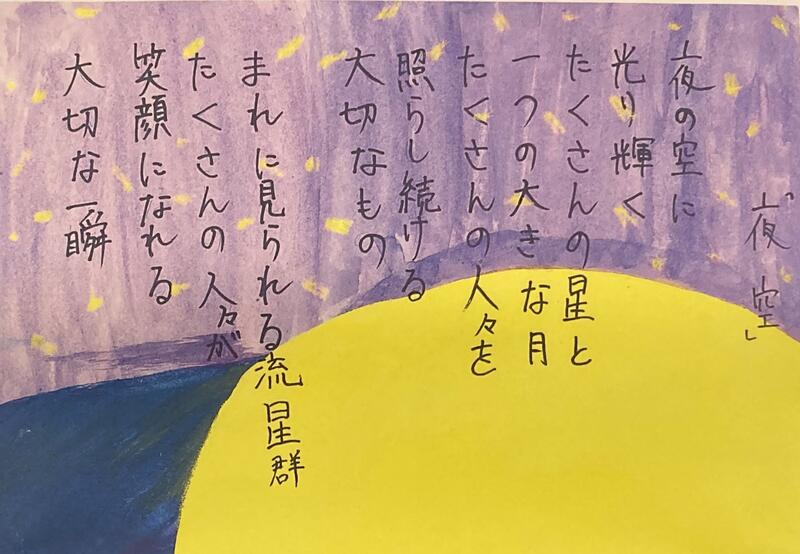 「夜空」
夜の空に
光り輝く
たくさんの星と
一つの大きな月
たくさんの人々を
照らし続ける
大切なもの
まれに見られる流星群
たくさんの人々が
笑顔になれる
大切な一瞬